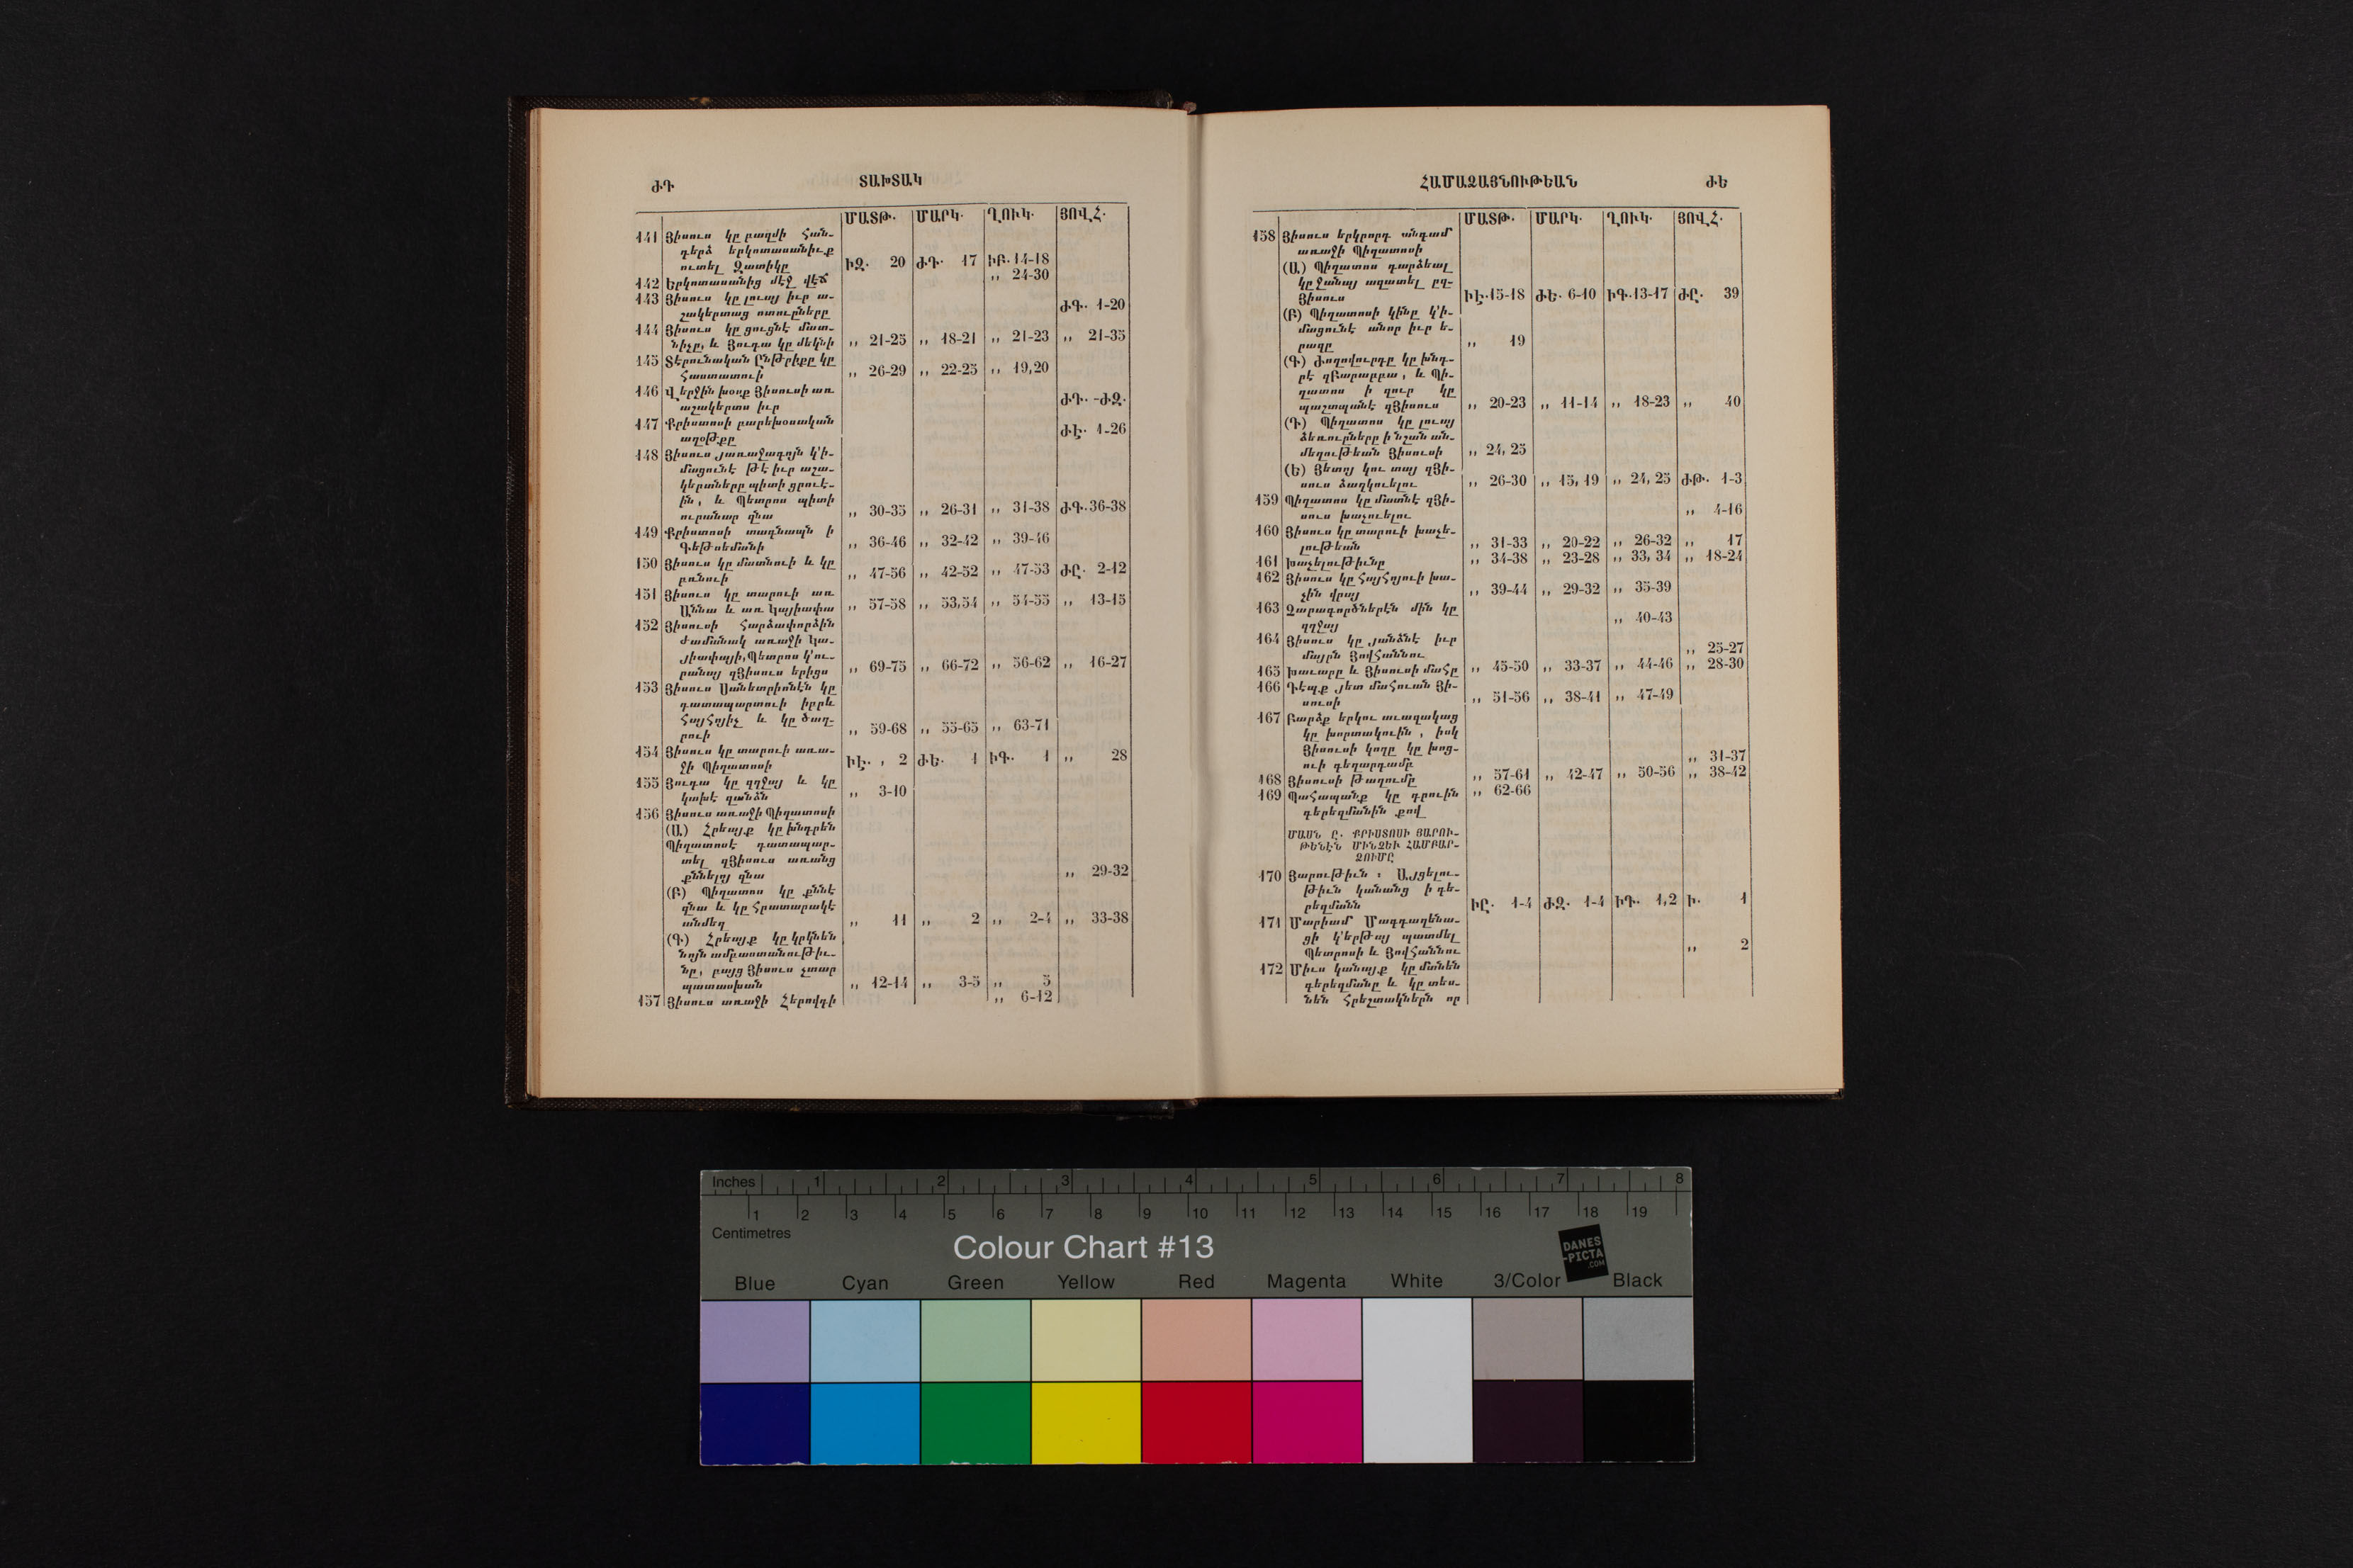 ԺԴ ՏԱԽՏԱԿ
ՄԱՏԹ. ՄԱՐԿ. ՂՈՒԿ. ՅՈՎՀ.
141 Յիսուս կը բազմի հան-
դերձ երկոտասանիւք
ուտել Զատիկը ԻԶ. 20 ԺԴ. 17 ԻԲ. 14-18
142 Երկոտասանից մէջ վէճ ,, 24-30
143 Յիսուս կը լուայ իւր ա-
շակերտաց ոտուըները ԺԳ. 1-20
144 Յիսուս կը ցուցնէ մատ-
նիչը, և Յուդա կը մեկնի ,, 21-25 ,, 18-21 ,, 21-23 ,, 21-35
145 Տէրունական Ընթրիքը կը
հաստատուի ,, 26-29 ,, 22-25 ,, 19,20
146 Վերջին խօսք Յիսուսի առ
աշակերտս իւր ԺԴ. -ԺԶ.
147 Քրիստոսի բարեխօսական
աղօթքը ԺԷ. 1-26
148 Յիսուս յառաջագոյն կ'ի-
մացունէ թէ իւր աշա-
կերտները պիտի ցրուէ-
ին, և Պետրոս պիտի
ուրանար զնա ,, 30-35 ,, 26-31 ,, 31-38 ԺԳ. 36-38
149 Քրիստոսի տագնապն ի
Գեթսեմանի ,, 36-46 ,, 32-42 ,, 39-46
150 Յիսուս կը մատնուի և կը
բռնուի ,, 47-56 ,, 42-52 ,, 47-53 ԺԸ. 2-12
151 Յիսուս կը տարուի առ
Աննա և առ Կայիափա ,, 57-58 ,, 53,54 ,, 54-55 ,, 13-15
152 Յիսուսի հարձափորձին
ժամանակ առաջի Կա-
յիափայի, Պետրոս կ'ու-
րանայ զՅիսուս երիցս ,, 69-75 ,, 66-72 ,, 56-62 ,, 16-27
153 Յիսուս Սանետրիոնէն կը
դատապարտուի իբրև
հայհոյիչ և կը ծաղ-
րուի ,, 59-68 ,, 55-65 ,, 63-71
154 Յիսուս կը տարուի առա-
ջի Պիղատոսի ԻԷ. , 2 ԺԵ. 1 ԻԳ. 1 ,, 28
155 Յուդա կը զղջայ և կը
կախէ զանձն ,, 3-10
156 Յիսուս առաջի Պիղատոսի
(Ա) Հրեայք կը խնդրեն
Պիղատոսէ դատապար-
տել զՅիսուս առանց
քննելոյ զնա ,, 29-32
(Բ) Պիղատոս կը քննէ
զնա և կը հրատարակէ
անմեղ ,, 11 ,, 2 ,, 2-4 ,, 33-38
(Գ) Հրեայք կը կրկնեն
նոյն ամբաստանութիւ-
նը, բայց Յիսուս չտար
պատասխան ,, 12-14 ,, 3-5 ,, 5
157 Յիսուս առաջի Հերովդի ,, 6-12
ՀԱՄԱՁԱՅՆՈՒԹԵԱՆ ԺԵ
ՄԱՏԹ. ՄԱՐԿ. ՂՈՒԿ. ՅՈՎՀ.
158 Յիսուս երկրորդ անգամ
առաջի Պիղատոսի
(Ա) Պիղատոս դարձեալ
կը ջանայ ազատել զը-
Յիսուս ԻԷ. 15-18 ԺԵ. 6-10 ԻԳ. 13-17 ԺԸ. 39
(Բ) Պիղատոսի կինը կ'ի-
մացունէ անոր իւր ե-
րազը ,, 19
(Գ) Ժողովուրդը կը խնդ-
րէ զԲարաբբա, և Պի-
ղատոս ի զուր կը
պաշտպանէ զՅիսուս ,, 20-23 ,, 11-14 ,, 18-23 ,, 40
(Դ) Պիղատոս կը լուայ
ձեռուըները ի նշան ան-
մեղութեան Յիսուսի ,, 24, 25
(Ե) Յետոյ կու տայ զՅի-
սուս ձաղկուելու ,, 26-30 ,, 15, 19 ,, 24, 25 ԺԹ. 1-3
159 Պիղատոս կը մատնէ զՅի-
սուս խաչուելու ,, 4-16
160 Յիսուս կը տարուի խաչե-
լութեան ,, 31-33 ,, 20-22 ,, 26-32 ,, 17
161 Խաչելութիւնը ,, 34-38 ,, 23-28 ,, 33, 34 ,, 18-24
162 Յիսուս կը հայհոյուի խա-
չին վրայ ,, 39-44 ,, 29-32 ,, 35-39
163 Չարագործներէն մին կը
զղջայ ,, 40-43
164 Յիսուս կը յանձնէ իւր
մայրն Յովհաննու ,, 25-27
165 Խաւարը և Յիսուսի մահը ,, 45-50 ,, 33-37 ,, 44-46 ,, 28-30
166 Դէպք յետ մահուան Յի-
սուսի ,, 51-56 ,, 38-41 ,, 47-49
167 Բարձք երկու աւազակաց
կը խորտակուին, իսկ
Յիսուսի կողը կը խոց-
ուի գեղարդամբ ,, 31-37
168 Յիսուսի թաղումը ,, 57-61 ,, 42-47 ,, 50-56 ,, 38-42
169 Պահապանք կը դրուին
գերեզմանին քով ,, 62-66
ՄԱՍՆ Ը. ՔՐԻՍՏՈՍԻ ՅԱՐՈՒ-
ԹԵՆԷՆ ՄԻՆՉԵՒ ՀԱՄԲԱՐ-
ՁՈՒՄԸ
170 Յարութիւն : Այցելու-
թիւն կանանց ի գե-
րեզմանն ԻԸ. 1-4 ԺԶ. 1-4 ԻԴ. 1,2 Ի. 1
171 Մարիամ Մագդաղենա-
ցի կ'երթայ պատմել
Պետրոսի և Յովհաննու ,, 2
172 Միւս կանայք կը մտնեն
գերեզմանը և կը տես-
նեն հրեշտակներն որ
Inches 1 2 3 4 5 6 7 8
1 2 3 4 5 6 7 8 9 10 11 12 13 14 15 16 17 18 19
Centimetres
Colour Chart #13
DANES
-PICTA
.COM
Blue Cyan Green Yellow Red Magenta White 3/Color Black